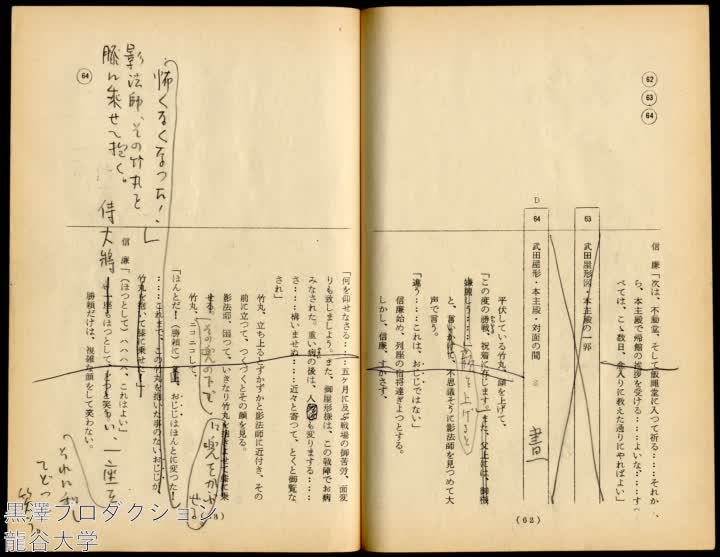 62
63
64
信 廉「次は、不動堂、そして飯縄堂に入つて祈る‥‥それか
ら、本主殿で帰館の挨拶を受ける‥‥よいな‥‥す
べては、こゝ数日、念入りに教えた通りにやればよい」
63
武田屋形図・本主殿の一郭
D
64
武田屋形・本主殿・対面の間
平伏している竹丸、顔を上げて、
「この度の勝戦、祝着に存じます。また、父上には、御機
嫌麗しう‥‥
顔を上げると
と、言いかけて、不思議そうに影法師を見つめて大
声で言う。
「違う‥‥これは、おじじではない」
信廉始め、列座の侍将達ぎよつとする。
しかし、信廉、すかさず、
(62)
「何を仰せなさる‥‥五ケ月に及ぶ戦場の御苦労、面変
りも致しましよう。また、御屋形様は、この戦陣でお病
みなされた。重い病の後は、人も変りまする‥‥
さ‥‥構いませぬ‥‥近々と寄つて、とくと御覧な
され」
竹丸、立ち上るとずかずかと影法師に近付き、その
前に立つて、つくづくとその顔を見る。
影法師、困つて、いきなり竹丸を抱きよせて膝に乗
せる。
竹丸、ニコニコして、
「ほんとだ!(勝頼に)おじじはほんとに変つた!
‥‥これまで、この竹丸を抱いた事のないおじじが、
竹丸を抱いて膝に乗せた!」
信 廉「(ほつとして)ハハハヽ、これはよい」
一座もほつとしてどつと笑わい、
勝頼だけは、複雑な顔をして笑わない。
怖くなくなつた!」
影法師、その竹丸を
膝に乗せて抱く。
侍大将
一座も
それに和し
てどつ
64
黒澤プロダクション
龍谷大学